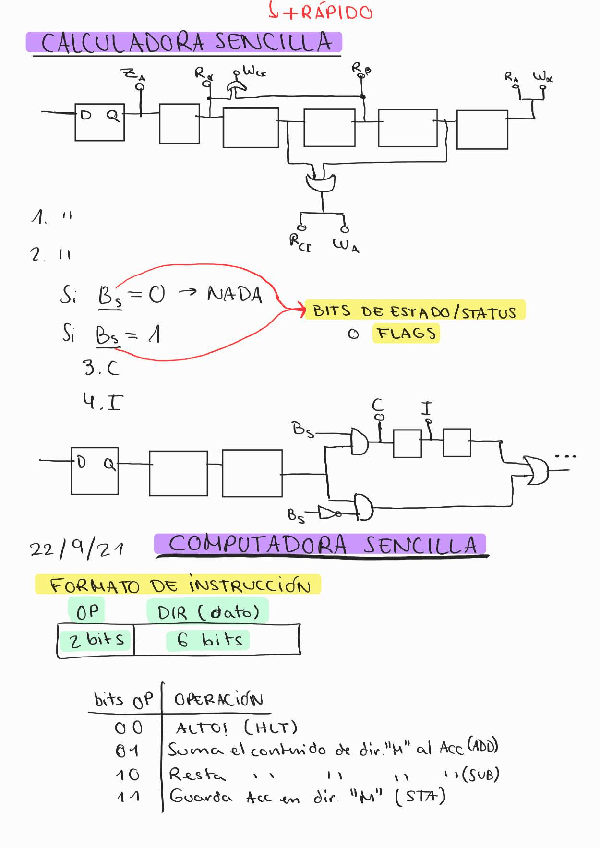 ↳ + RÁPIDO
CALCULADORA SENCILLA
Z_A R_α W_CI R_B R_A W_α
D Q
R_CI W_A
1. "
2. "
Si B_S = 0 → NADA
Si B_S = 1
BITS DE ESTADO/STATUS
o FLAGS
3. C
4. I
C I
B_S
D Q
...
B_S
22/9/21 COMPUTADORA SENCILLA
FORMATO DE INSTRUCCIÓN
OP DIR (dato)
2 bits 6 bits
bits OP OPERACIÓN
00 ALTO! (HLT)
01 Suma el contenido de dir. "M" al Acc (ADD)
10 Resta " " " " (SUB)
11 Guarda Acc en dir. "M" (STA)